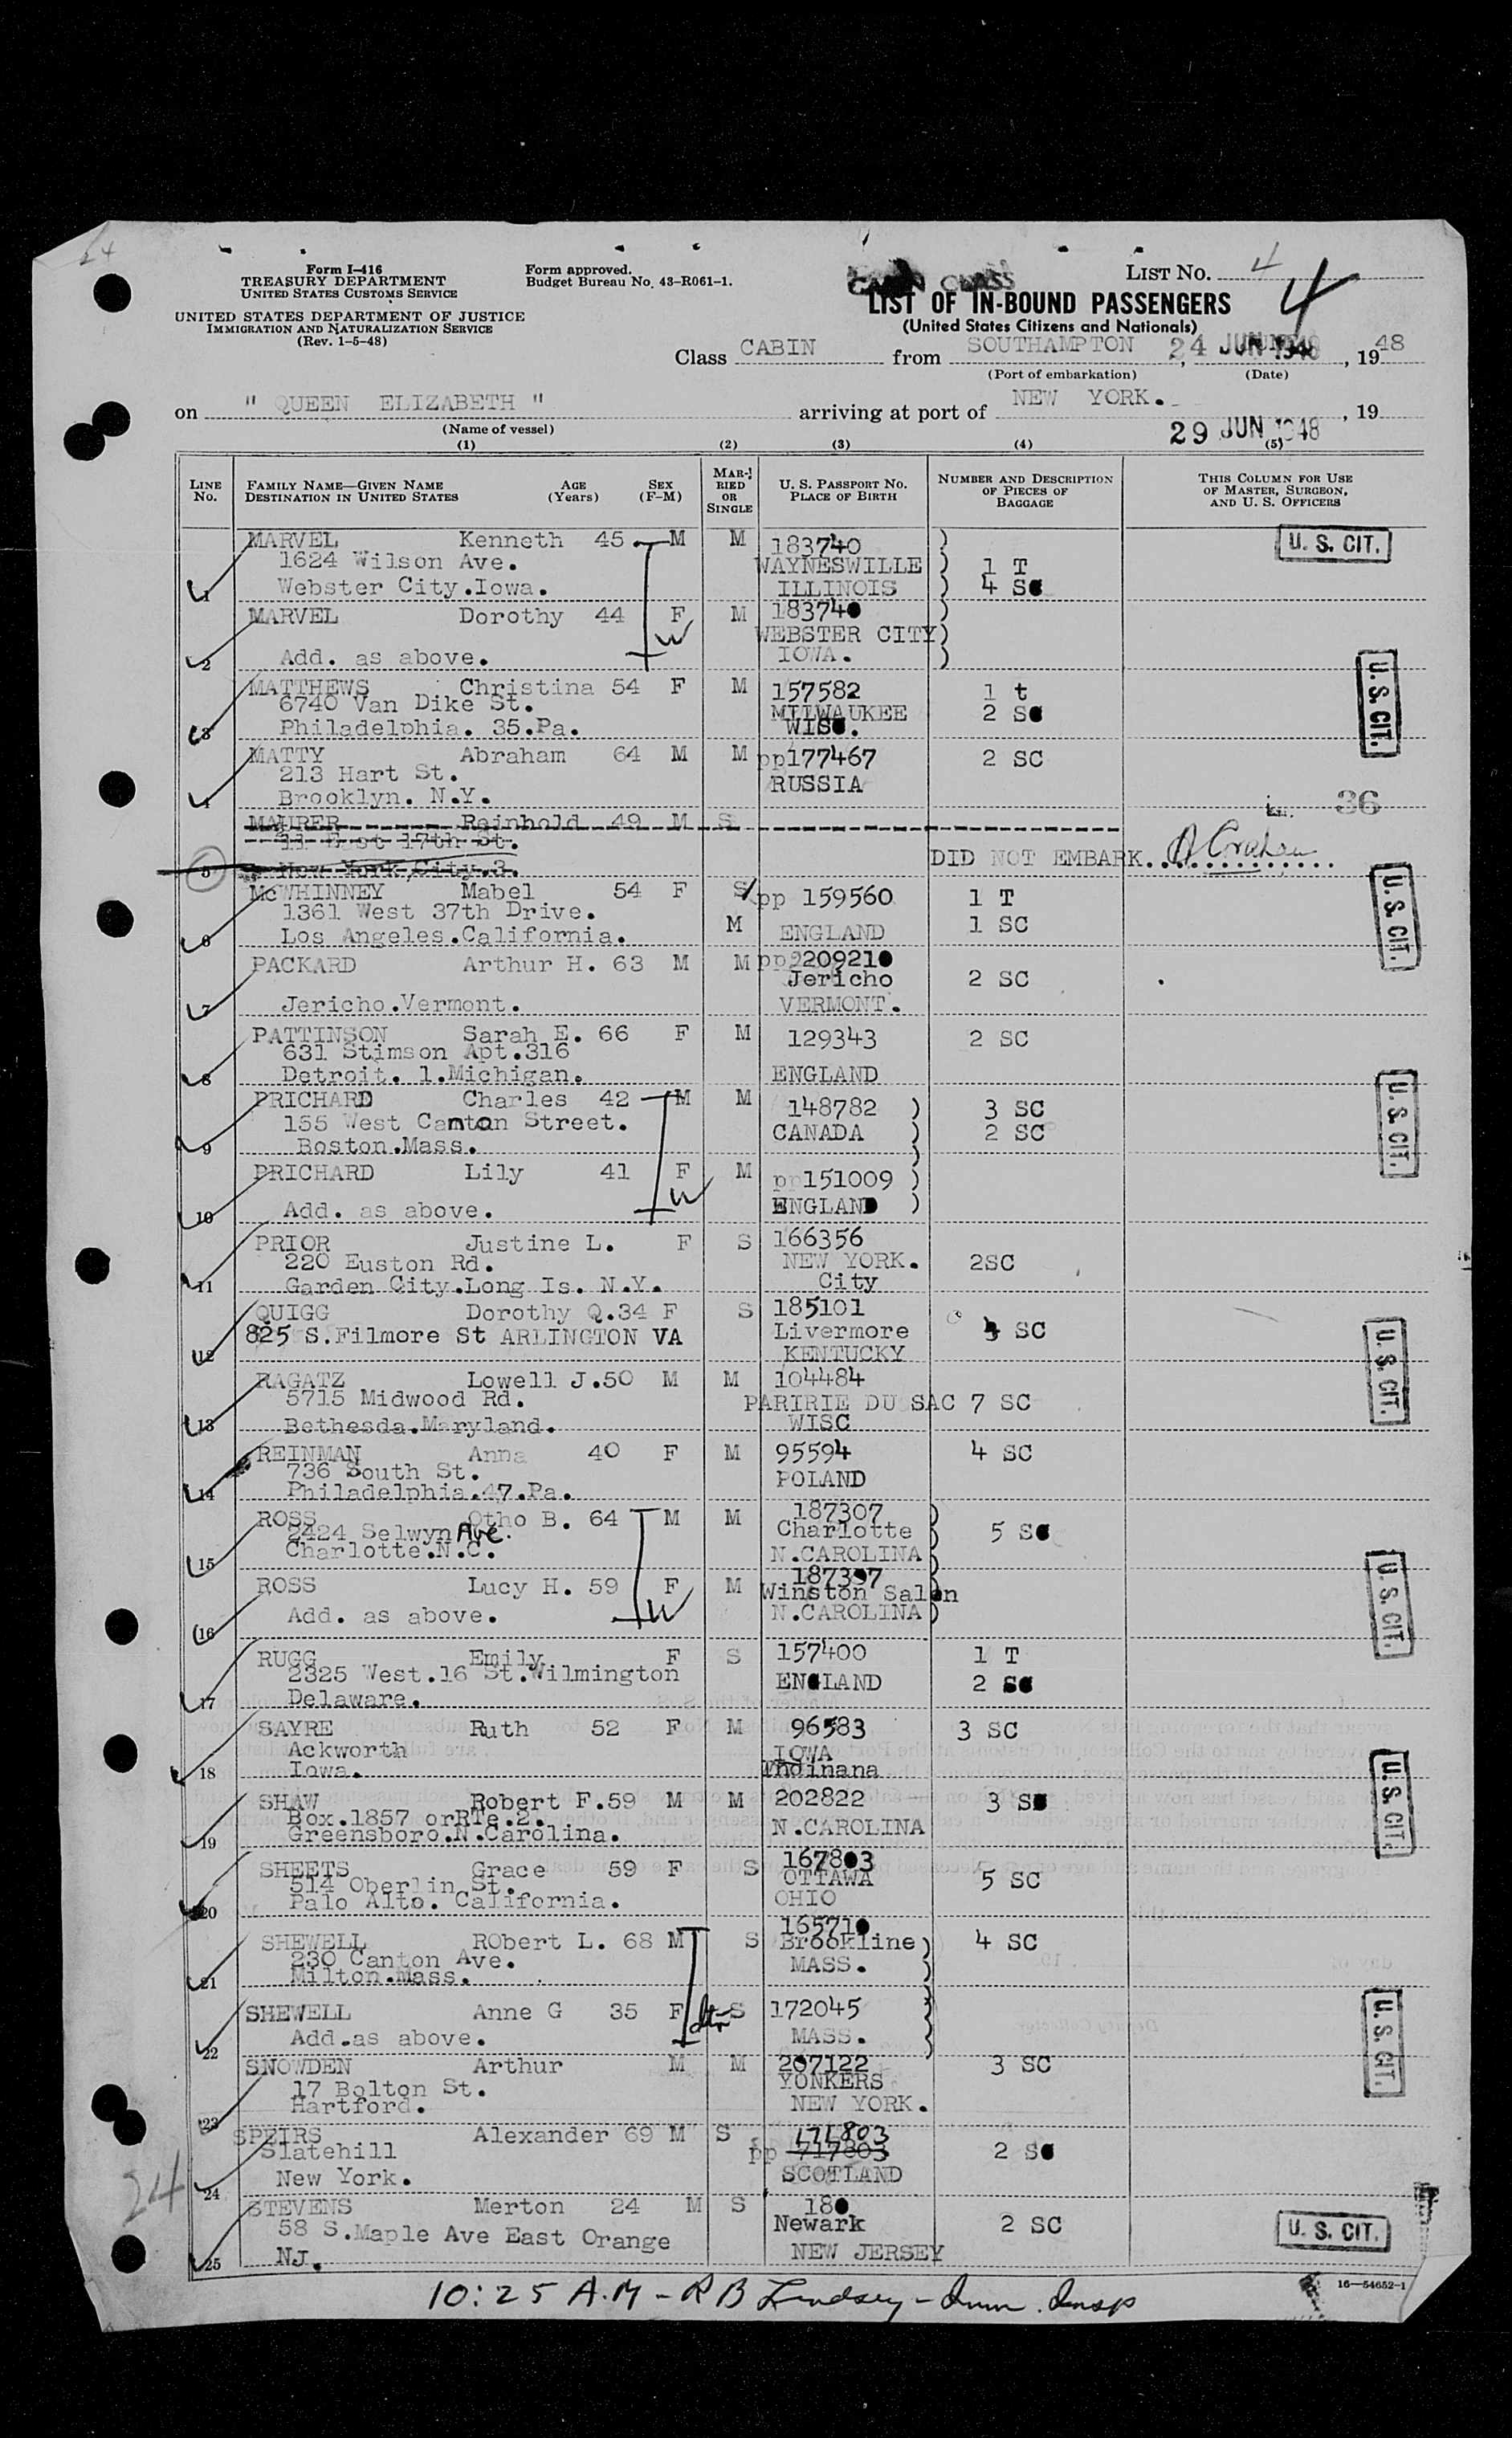 24
Form I-416
TREASURY DEPARTMENT
UNITED STATES CUSTOMS SERVICE
UNITED STATES DEPARTMENT OF JUSTICE
IMMIGRATION AND NATURALIZATION SERVICE
(Rev. 1-5-48)
Form approved.
Budget Bureau No. 43-R061-1.
CABIN CLASS
LIST OF IN-BOUND PASSENGERS
(United States Citizens and Nationals)
LIST No. 4
4
Class CABIN from SOUTHAMPTON 24 JUN 1948, 1948
(Port of embarkation) (Date)
on " QUEEN ELIZABETH " arriving at port of NEW YORK. 29 JUN 1948, 19
(Name of vessel)
(1) (2) (3) (4) (5)
LINE No.
FAMILY NAME—GIVEN NAME AGE SEX
DESTINATION IN UNITED STATES (Years) (F-M)
MARRIED OR SINGLE
U. S. PASSPORT NO.
PLACE OF BIRTH
NUMBER AND DESCRIPTION OF PIECES OF BAGGAGE
THIS COLUMN FOR USE OF MASTER, SURGEON, AND U. S. OFFICERS
MARVEL Kenneth 45 M M 183740 ) U. S. CIT.
1624 Wilson Ave. WAYNESWILLE ) 1 T
1 Webster City.Iowa. ILLINOIS ) 4 SC
MARVEL Dorothy 44 F M 183740 )
W WEBSTER CITY)
2 Add. as above. IOWA. )
MATTHEWS Christina 54 F M 157582 1 t U. S. CIT.
6740 Van Dike St. MILWAUKEE 2 SC
3 Philadelphia. 35.Pa. WISC.
MATTY Abraham 64 M M pp177467 2 SC
213 Hart St. RUSSIA
4 Brooklyn. N.Y. 36
MAURER Reinhold 49 M S
11 East 17th St. DID NOT EMBARK.
5 New York City.3.
McWHINNEY Mabel 54 F S pp 159560 1 T U. S. CIT.
1361 West 37th Drive. M 1 SC
6 Los Angeles.California. ENGLAND
PACKARD Arthur H. 63 M M pp 209210
Jericho 2 SC
7 Jericho.Vermont. VERMONT.
PATTINSON Sarah E. 66 F M 129343 2 SC
631 Stimson Apt.316
8 Detroit. 1.Michigan. ENGLAND
PRICHARD Charles 42 M M 148782 ) 3 SC U. S. CIT.
155 West Canton Street. CANADA ) 2 SC
9 Boston.Mass. )
PRICHARD Lily 41 F M pp151009 )
W ENGLAND )
10 Add. as above.
PRIOR Justine L. F S 166356
220 Euston Rd. NEW YORK. 2SC
11 Garden City.Long Is. N.Y. City
QUIGG Dorothy Q.34 F S 185101
825 S.Filmore St ARLINGTON VA Livermore SC U. S. CIT.
12 KENTUCKY
RAGATZ Lowell J.50 M M 104484
5715 Midwood Rd. PARIRIE DU SAC 7 SC
13 Bethesda.Maryland. WISC
REINMAN Anna 40 F M 95594 4 SC
736 South St. POLAND
14 Philadelphia.47.Pa.
ROSS Otho B. 64 M M 187307 )
2424 Selwyn Ave. Charlotte 5 SC
15 Charlotte.N.C. N.CAROLINA ) U. S. CIT.
ROSS Lucy H. 59 F M 187307
W Winston Salen
16 Add. as above. N.CAROLINA)
RUGG Emily F S 157400 1 T
2325 West.16 St.Wilmington ENGLAND 2 SC
17 Delaware.
SAYRE Ruth 52 F M 96583 3 SC
Ackworth IOWA
18 Iowa. Indinana
SHAW Robert F.59 M M 202822 3 SC U. S. CIT.
Box.1857 orRTe.2.
19 Greensboro.N.Carolina. N.CAROLINA
SHEETS Grace 59 F S 167803
514 Oberlin St. OTTAWA 5 SC
20 Palo Alto. California. OHIO
SHEWELL RObert L. 68 M S 165710
230 Canton Ave. Brookline) 4 SC
21 Milton.Mass. MASS. )
SHEWELL Anne G 35 F dtr S 172045 ) U. S. CIT.
22 Add.as above. MASS. )
SNOWDEN Arthur M M 207122 3 SC
17 Bolton St. YONKERS
23 Hartford. NEW YORK.
SPEIRS Alexander 69 M S 171803
Slatehill pp 717803 2 SC
24 New York. SCOTLAND
24
STEVENS Merton 24 M S 180
58 S.Maple Ave East Orange Newark 2 SC U. S. CIT.
25 NJ. NEW JERSEY
10:25 A.M - R B Lindsey - Imm. Insp
16-54652-1